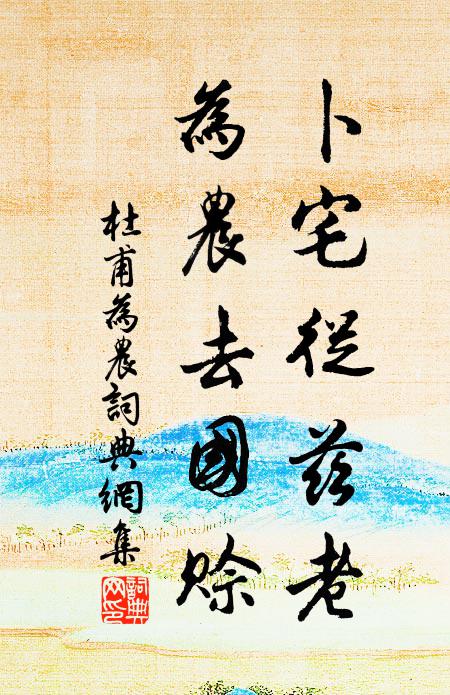 卜宅從茲老
為農去國賒
杜甫為農詞典網集
詞典网印